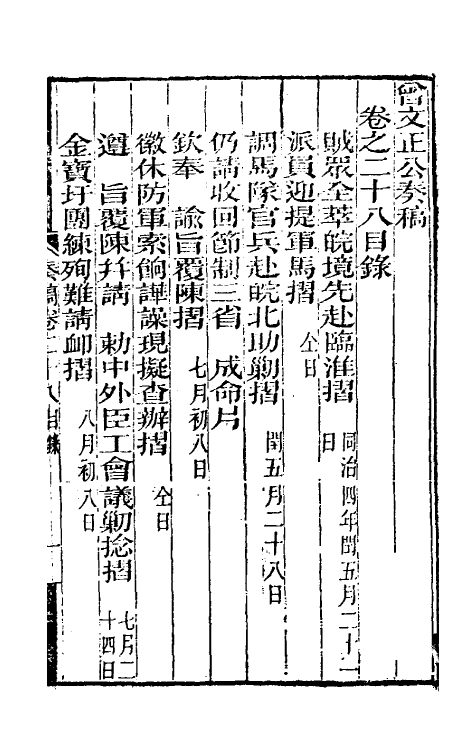 曾文正公奏稿
卷之二十八目錄
賊眾全萃皖境先赴臨淮摺 同治四年閏五月二十二日
派員迎提軍馬摺 仝日
調馬隊官兵赴皖北助勦摺 閏五月二十八日
仍請收回節制三省 成命片
欽奉 諭旨覆陳摺 七月初八日
徽休防軍索餉譁譟現擬查辦摺 仝日
遵 旨覆陳幷請 勅中外臣工會議勦捻摺 七月二十四日
金寶圩團練殉難請卹摺 八月初八日
奏稿卷二十八目錄